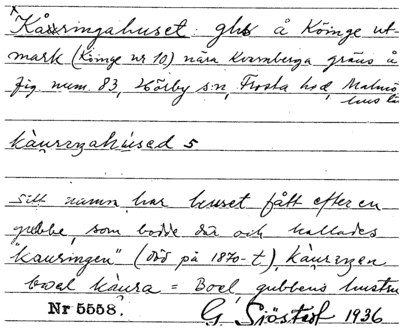 Kåsringahuset ghs å Köinge ut-
mark (Köinge nr 10) nära Kvarnberga gräns å
fig. num. 83, Hörby sn, Frosta hd, Malmö
hus län
kàurɩŋahúsed s
sitt namn har huset fått efter en
gubbe, som bodde där och kallades
"kauringen" (död på 1870-t), kàurɩŋen
boəl kàura = Boel, gubbens hustru
Nr 5558. G. Sjöstedt 1936